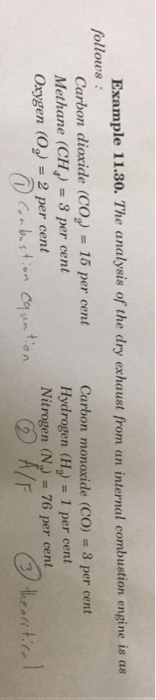 Example 11.30. The analysis of the dry exhaust from an internal combustion engine is as
follows :
Carbon dioxide (CO₂) = 15 per cent Carbon monoxide (CO) = 3 per cent
Methane (CH₄) = 3 per cent Hydrogen (H₂) = 1 per cent
Oxygen (O₂) = 2 per cent Nitrogen (N₂) = 76 per cent
① Combustion equation ② A/F ③ theoritical